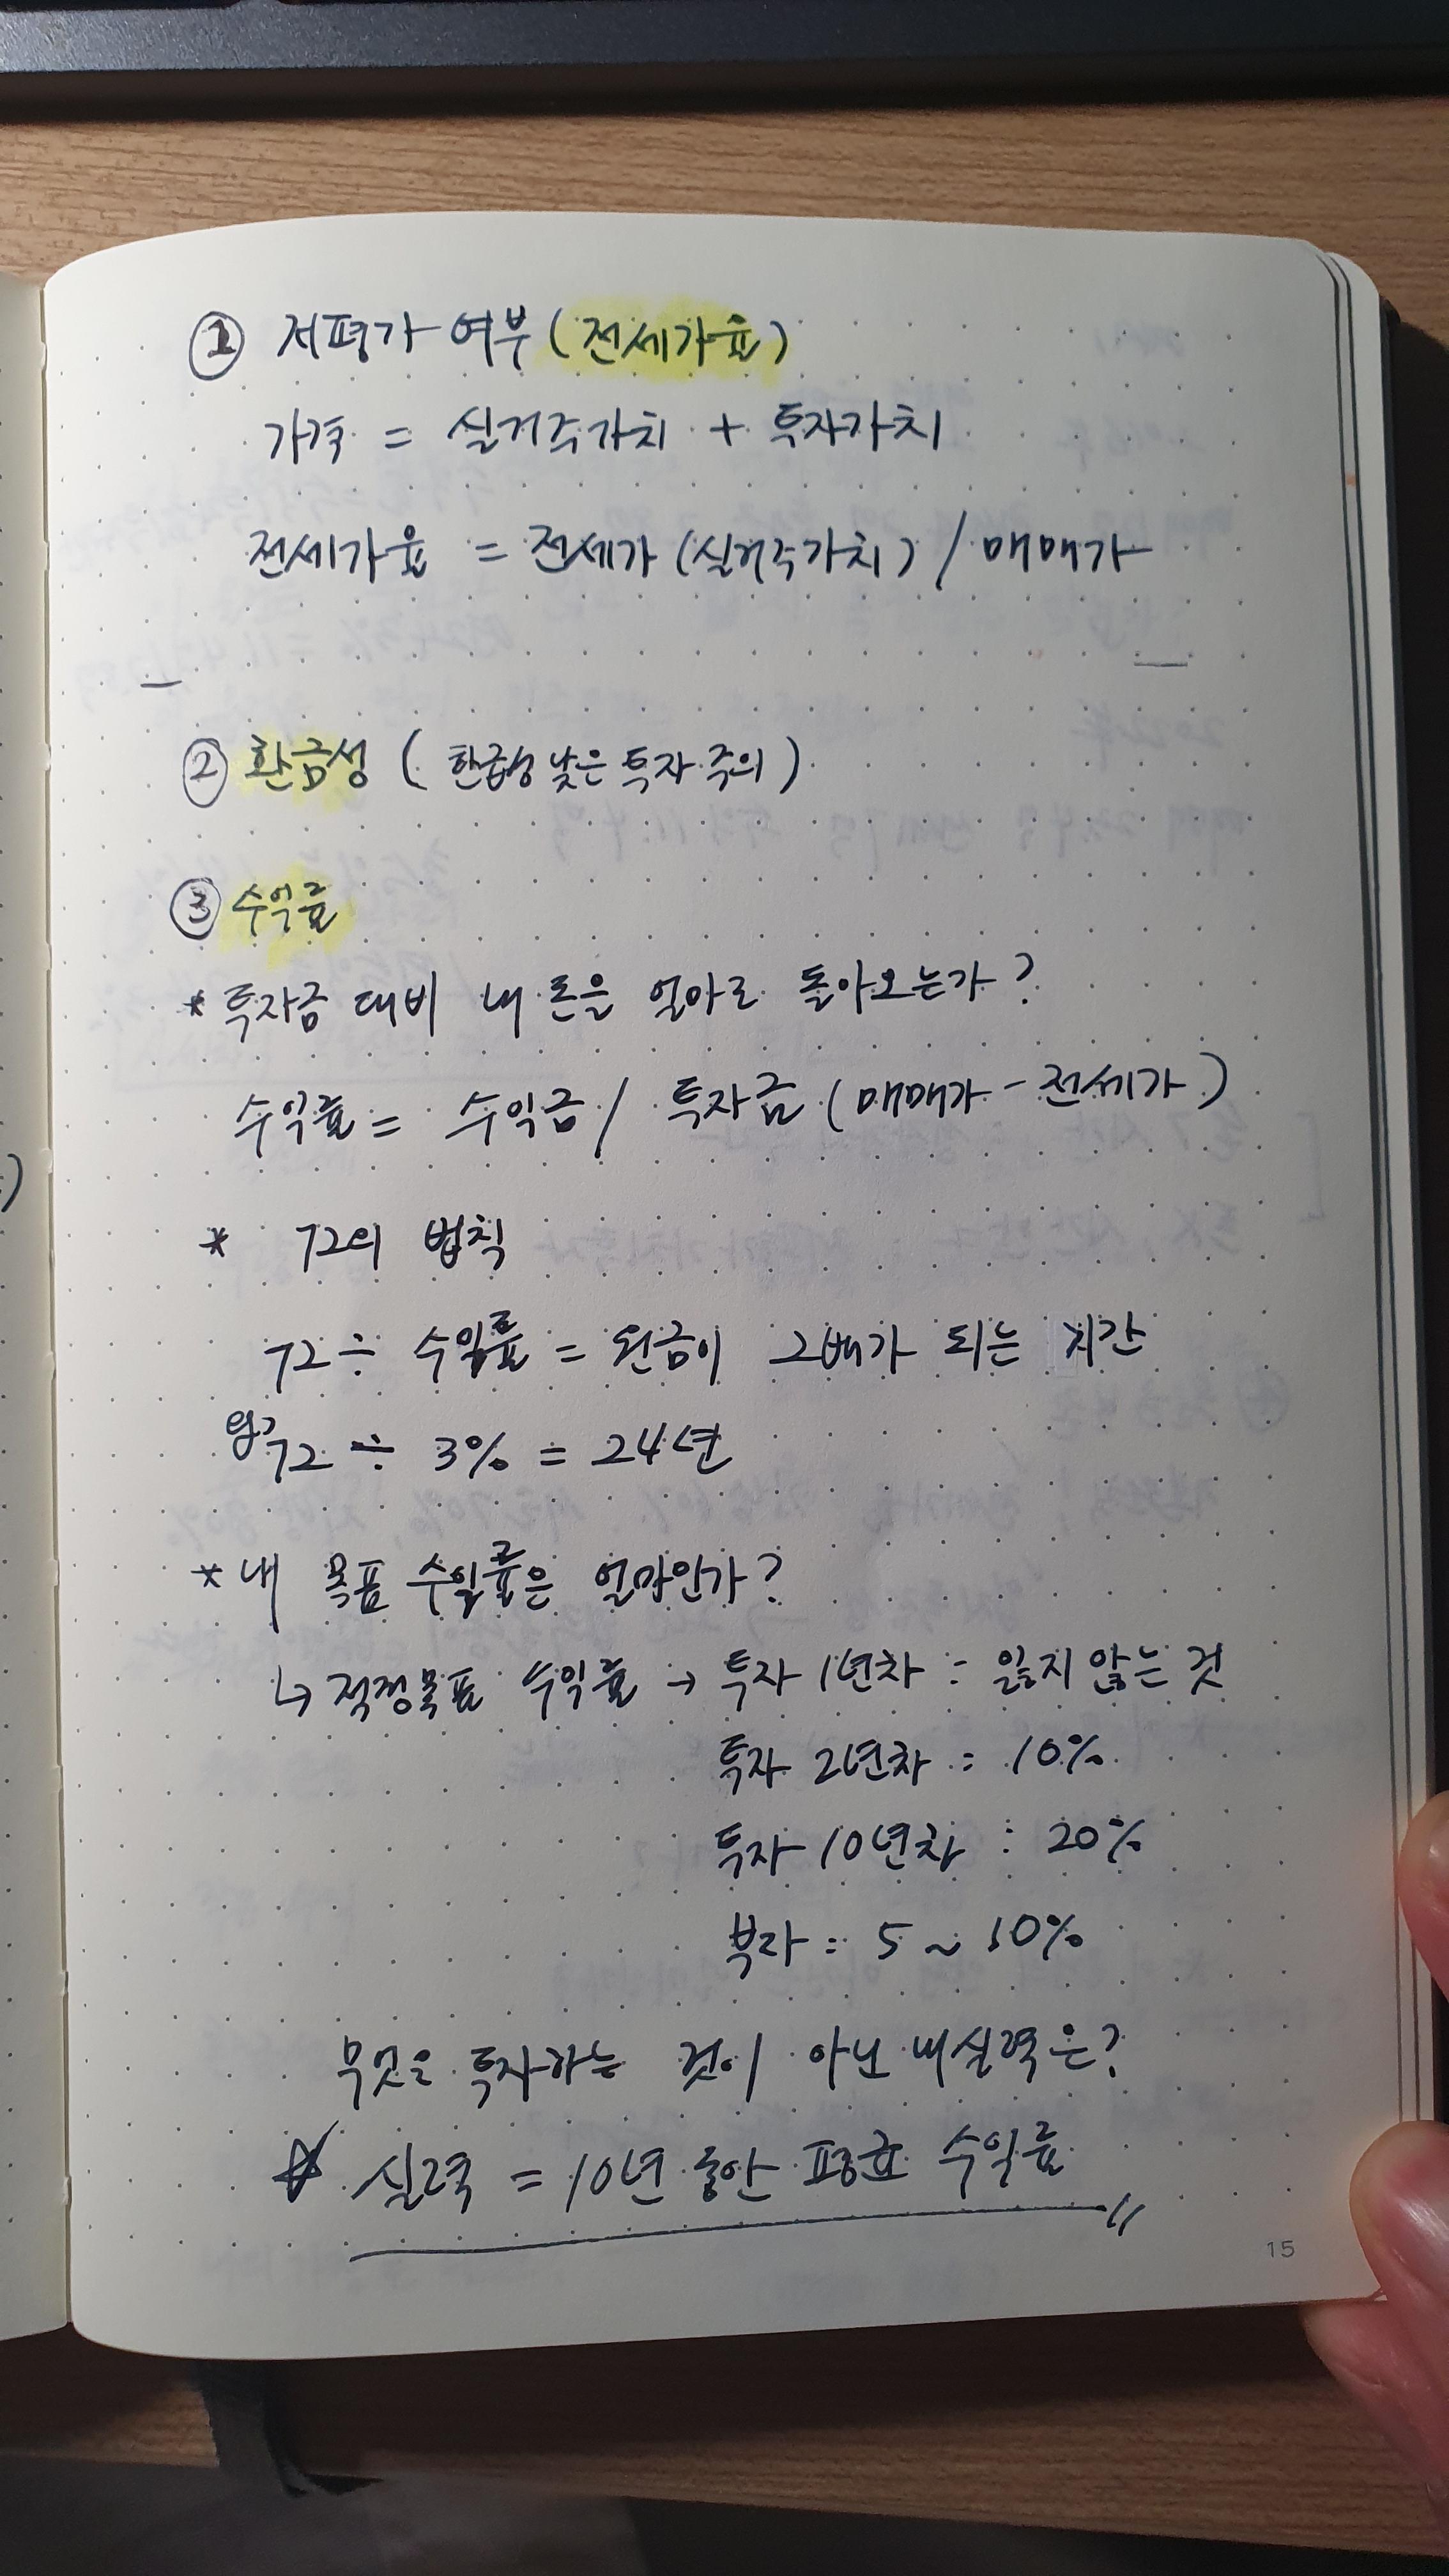 ① 저평가 여부 (전세가율)
가격 = 실거주가치 + 투자가치
전세가율 = 전세가 (실거주가치) / 매매가
② 환금성 ( 환금성 낮은 투자 주의 )
③ 수익률
* 투자금 대비 내 돈을 얼마로 돌아오는가?
수익률 = 수익금 / 투자금 (매매가 - 전세가)
* 72의 법칙
72 ÷ 수익률 = 원금이 2배가 되는 시간
72 ÷ 3% = 24년
* 내 목표 수익률은 얼마인가?
↳ 적정목표 수익률 → 투자 1년차 : 잃지 않는 것
투자 2년차 : 10%
투자 10년차 : 20%
부자 : 5 ~ 10%
무엇을 투자하는 것이 아닌 내 실력은?
☆ 실력 = 10년 동안 평균 수익률
15